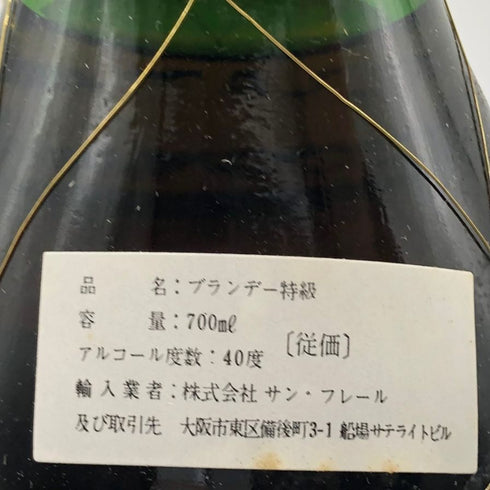 品　　名：ブランデー特級
容　　量：700㎖
アルコール度数：40度　〔従価〕
輸入業者：株式会社 サン・フレール
及び取引先　大阪市東区備後町3-1 船場サテライトビル